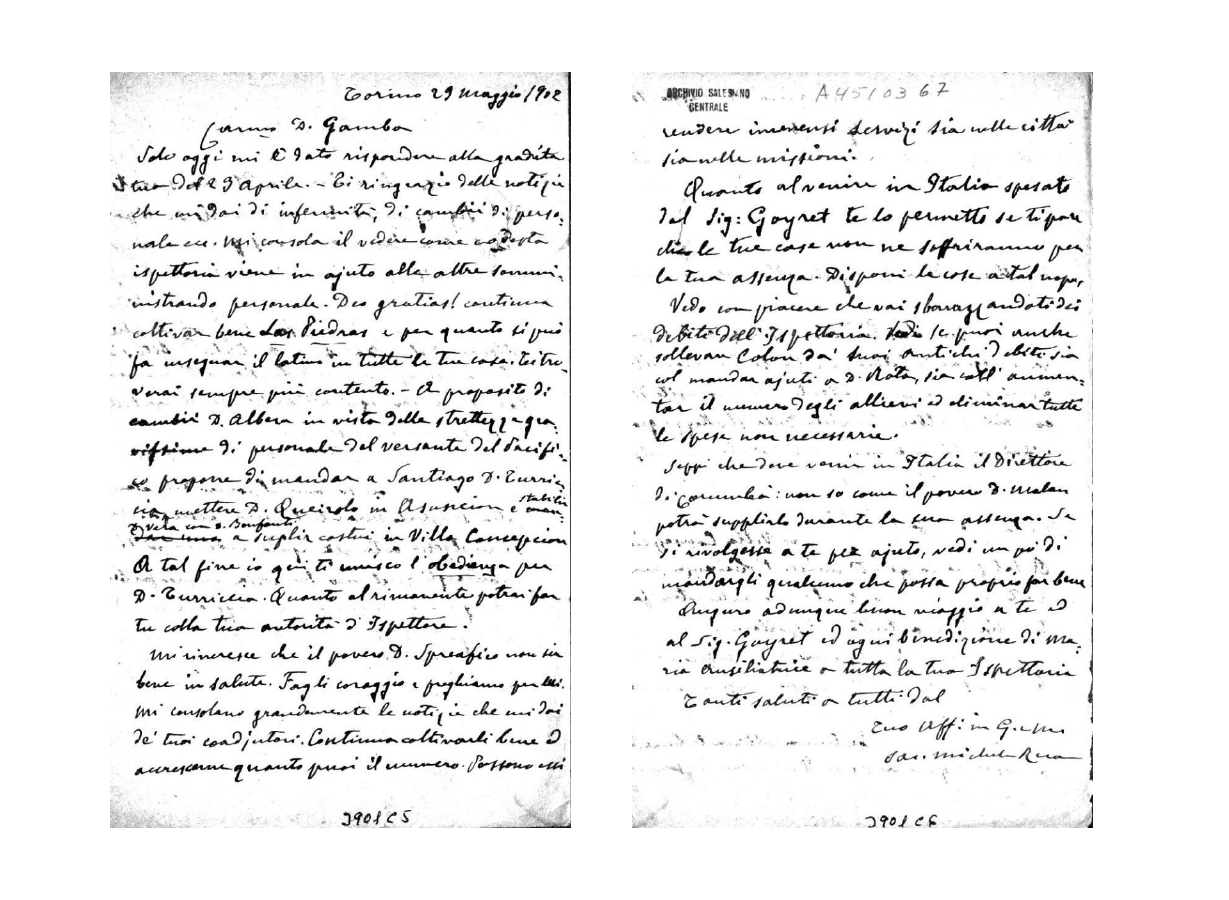 Torino 29 Maggio/902
Carmo D. Gamba
Solo oggi mi è dato rispondere alla gradita
tua del 29 Aprile. - Ti ringrazio delle notizie
che mi dai di infermità, di cambii di perso-
nale ecc. Mi consola il vedere come codesta
ispettoria viene in ajuto alle altre sommi-
nistrando personale. Deo gratias! continua
coltivar bene Las Piedras e per quanto si può
fa insegnar il latino in tutte le tue case. ti tro-
verai sempre più contento. - A proposito di
cambii D. Albera in vista delle strettezze gra-
vissime di personale del versante del Pacifi-
co propone di mandar a Santiago D. Turric
cia, mettere D. Queirolo in Asuncion e
stabilir
D. Vera con D. Bonfanti
a suplir costui in Villa Concepcion
A tal fine io qui ti unisco l'obedienza per
D. Turriccia. Quanto al rimanente potrai far
tu colla tua autorità d'Ispettore.
Mi rincresce che il povero D. Spreafico non sia
bene in salute. Fagli coraggio e preghiamo per lui.
Mi consolano grandemente le notizie che mi dai
de' tuoi coadjutori. Continua coltivarli bene ed
accrescerne quanto puoi il numero. Possono essi
J901C5
ARCHIVIO SALESIANO
CENTRALE
A4510367
rendere immensi servizi sia nelle città
sia nelle missioni.
Quanto al venire in Italia spesato
dal Sig: Goyret te lo permetto se ti pare
che le tue case non ne soffriranno per
la tua assenza. Disponi le cose a tal uopo,
Vedo con piacere che vai sbarazzandoti dei
debiti dell'Ispettoria. Vedi se puoi anche
sollevar Colon da' suoi antichi debiti sia
col mandar ajuti a D. Rota, sia coll'aumen-
tar il numero degli allievi ed eliminar tutte
le spese non necessarie.
Seppi che deve venir in Italia il Direttore
di Corumbà: non so come il povero D. Malan
potrà supplirlo durante la sua assenza. Se
si rivolgesse a te per ajuto, vedi un po' di
mandargli qualcuno che possa proprio far bene
Auguro adunque buon viaggio a te ed
al Sig. Goyret ed ogni benedizione di Ma-
ria Ausiliatrice a tutta la tua Ispettoria
Tanti saluti a tutti dal
Tuo Aff. in G.
Sac. Michele Rua
J901C6